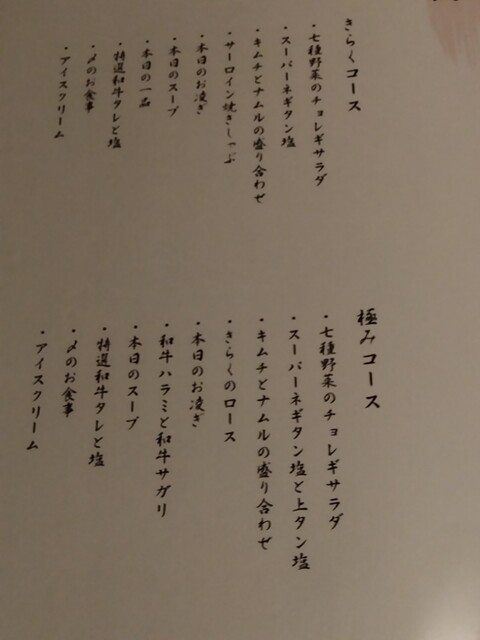 きらくコース
・七種野菜のチョレギサラダ
・スーパーネギタン塩
・キムチとナムルの盛り合わせ
・サーロイン焼きしゃぶ
・本日のお凌ぎ
・本日のスープ
・本日の一品
・特選和牛タレと塩
・〆のお食事
・アイスクリーム
極みコース
・七種野菜のチョレギサラダ
・スーパーネギタン塩と上タン塩
・キムチとナムルの盛り合わせ
・きらくのロース
・本日のお凌ぎ
・和牛ハラミと和牛サガリ
・本日のスープ
・特選和牛タレと塩
・〆のお食事
・アイスクリーム